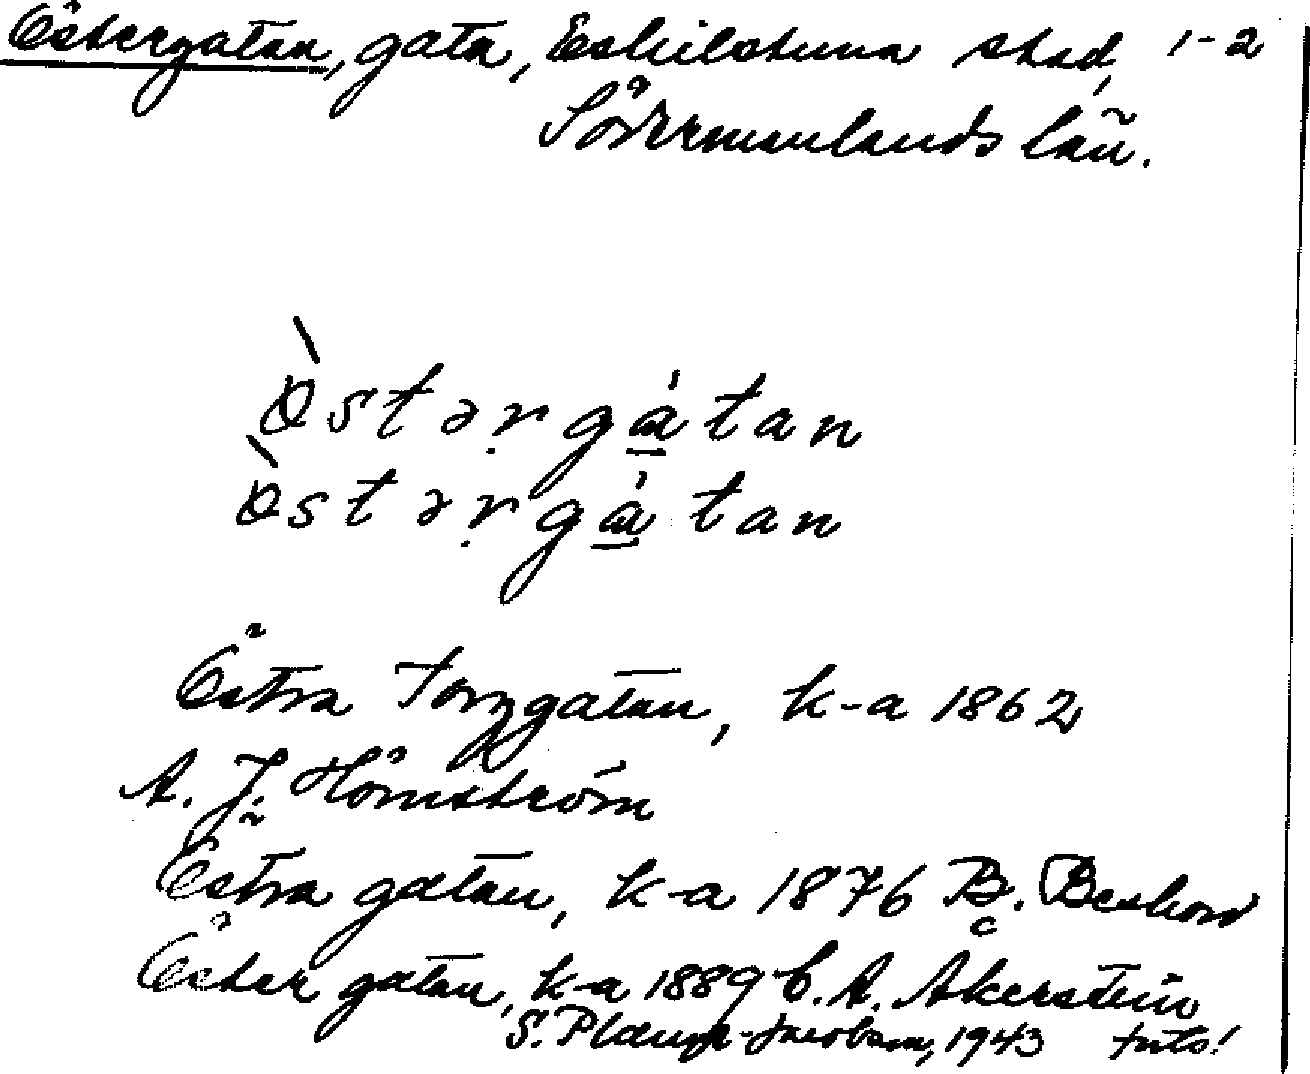 Östergatan, gata, Eskilstuna stad, 1-2
Södermanlands län.
Òstərgátan
Òstərgátan
Östra Torggatan, k-a 1862
A. J. Hömström
Östra gatan, k-a 1876 B. Beskow
Öster gatan, k-a 1889 C. A. Åkerstein
S. Plaum-Jacobson, 1943 forts!